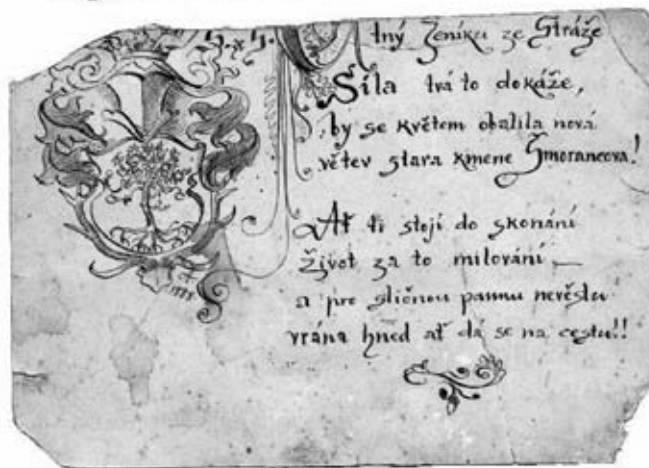 tný Ženíku ze Stráže
Síla tvá to dokáže,
by se květem obalila nová
větev stara kmene Šmorancova!
Ať ti stojí do skonání
život za to milování
a pro sličnou pannu nevěstu
vrána hned ať dá se na cestu!!